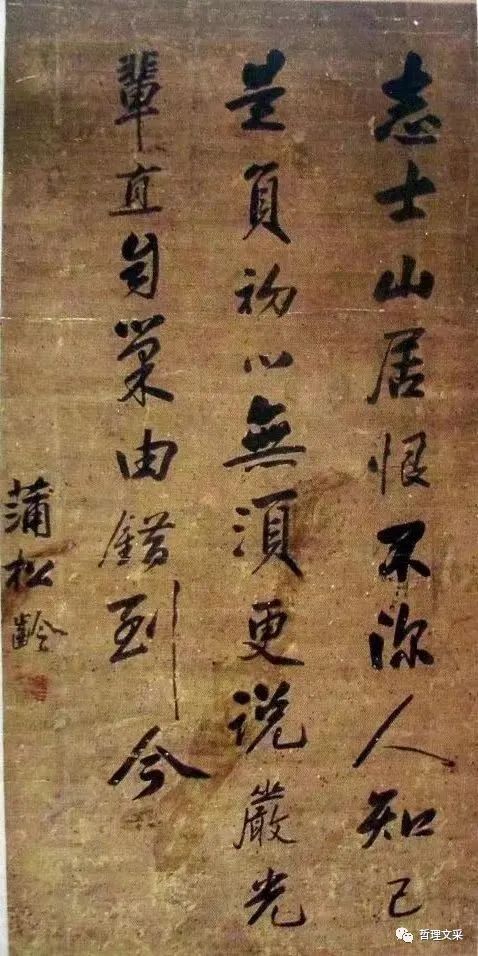 志士山居恨不深人知已
是負初心無須更說嚴光
輩直自巢由錯到今
蒲松齡
哲理文采